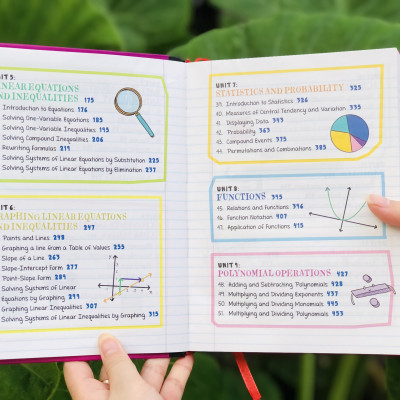 UNIT 5:
LINEAR EQUATIONS
AND INEQUALITIES 175
Introduction to Equations 176
Solving One-Variable Equations 185
Solving One-Variable Inequalities 195
Solving Compound Inequalities 206
Rewriting Formulas 217
Solving Systems of Linear Equations by Substitution 225
Solving Systems of Linear Equations by Elimination 237
UNIT 6:
GRAPHING LINEAR EQUATIONS
AND INEQUALITIES 247
Points and Lines 248
Graphing a line from a Table of Values 255
Slope of a Line 263
Slope-Intercept form 277
Point-Slope form 289
Solving Systems of Linear
Equations by Graphing 299
Graphing Linear Inequalities 307
Solving Systems of Linear Inequalities by Graphing 315
UNIT 7:
STATISTICS AND PROBABILITY 325
39. Introduction to Statistics 326
40. Measures of Central Tendency and Variation 335
41. Displaying Data 343
42. Probability 363
43. Compound Events 373
44. Permutations and Combinations 383
UNIT 8:
FUNCTIONS 395
45. Relations and Functions 396
46. Function Notation 407
47. Application of Functions 415
UNIT 9:
POLYNOMIAL OPERATIONS 427
48. Adding and Subtracting Polynomials 428
49. Multiplying and Dividing Exponents 437
50. Multiplying and Dividing Monomials 445
51. Multiplying and Dividing Polynomials 453